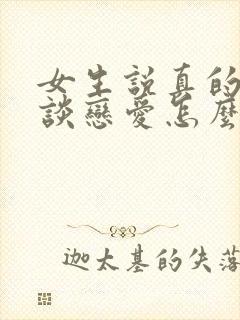 女生說真的
談戀愛怎麼
迦太基的失落